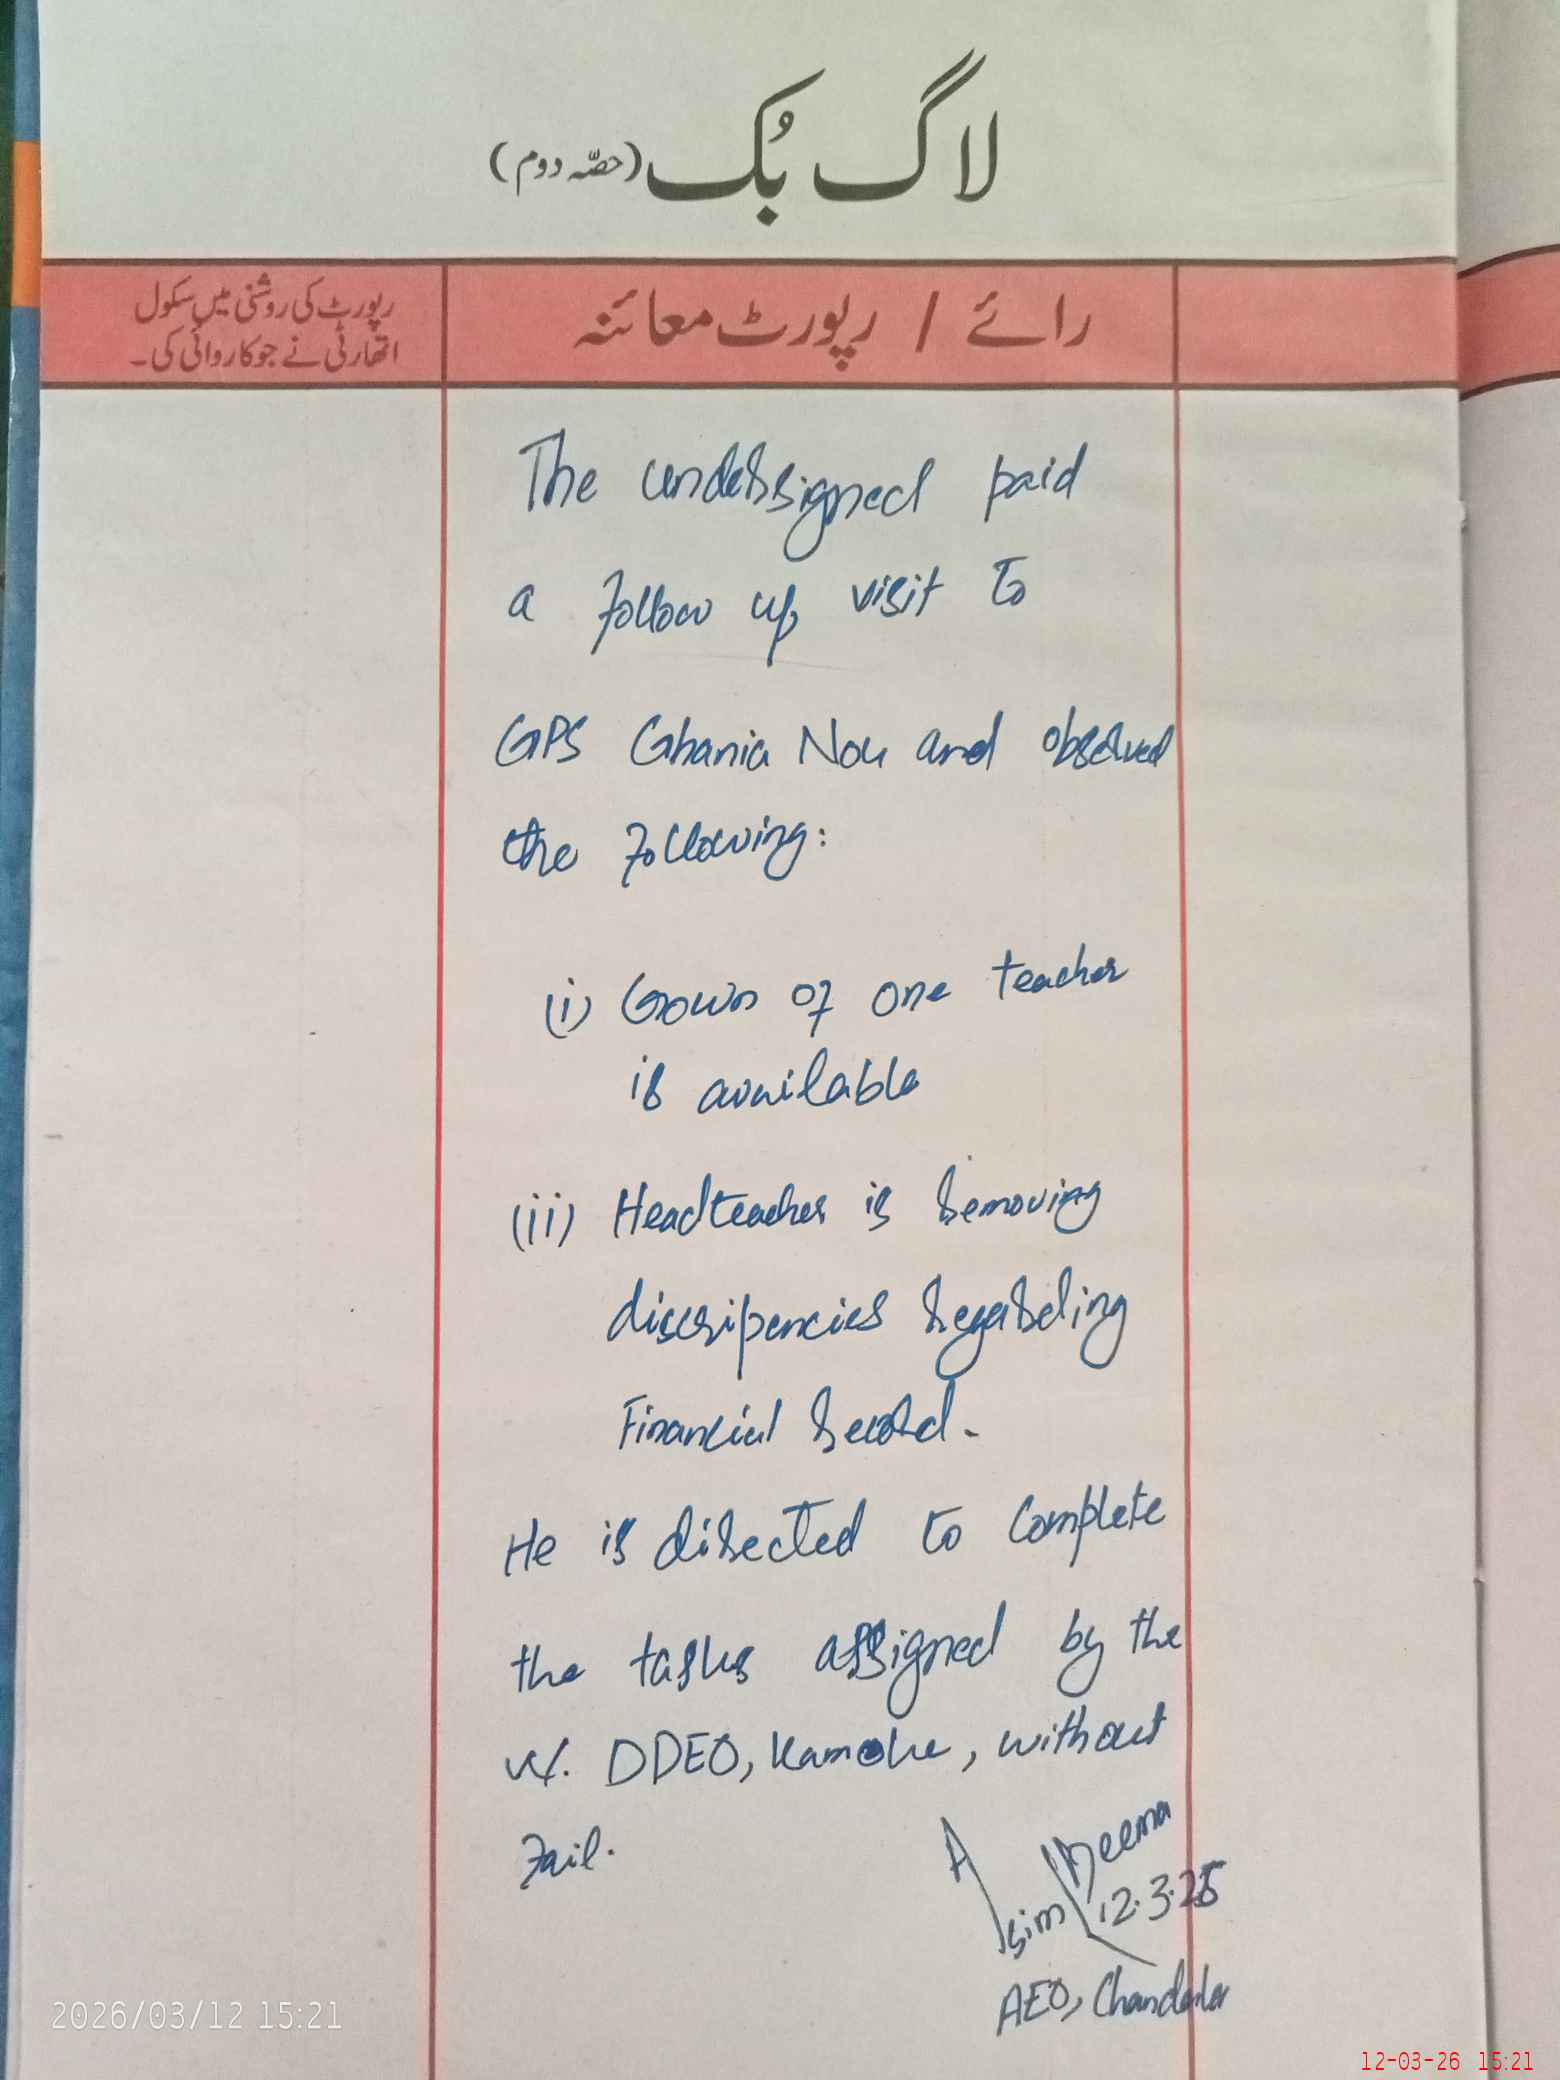 لاگ بُک (حصّہ دوم)
رائے / رپورٹ معائنہ
رپورٹ کی روشنی میں سکول
اتھارٹی نے جو کاروائی کی۔
The undersigned paid
a follow up visit to
GPS Ghania Nou and observed
the following:
(i) Gown of one teacher
is available
(ii) Headteacher is removing
discripencies regarding
Financial record.
He is directed to complete
the tasks assigned by the
w. DDEO, Kamoke, without
fail.
Asim Cheema
12.3.25
AEO,
2026/03/12 15:21
12-03-26 15:21